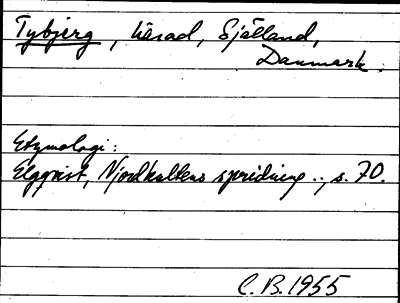 Tybjerg, härad, Själland,
Danmark.
Etymologi:
Elgqvist, Njordkultens spridning.., s. 70.
C.B. 1955